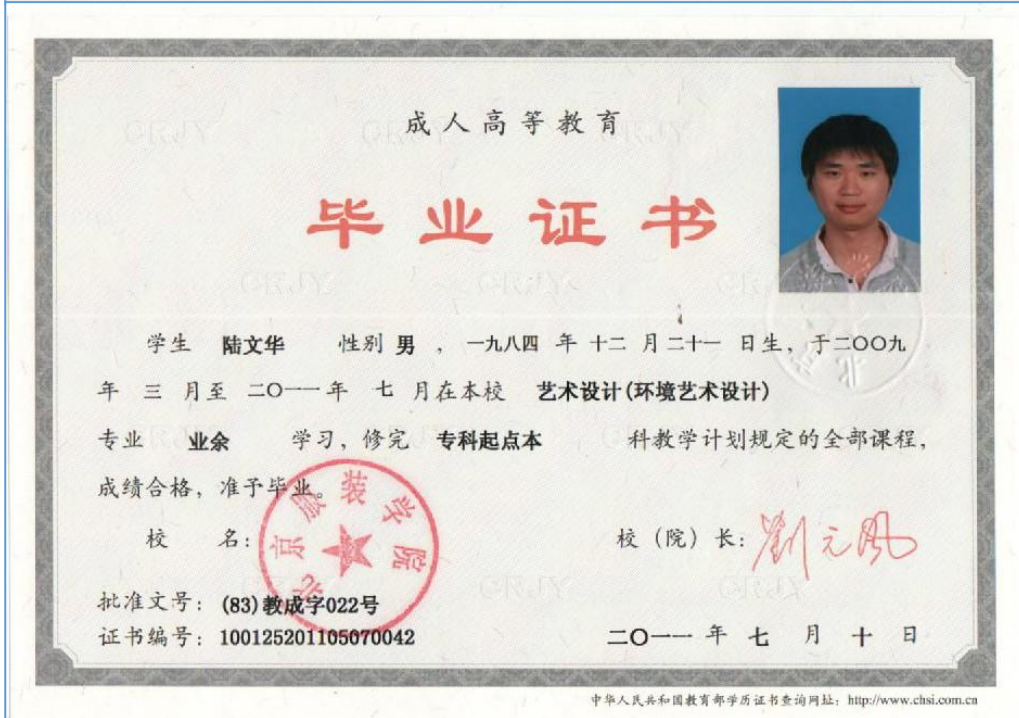 成人高等教育
毕业证书
学生 陆文华 性别 男 ，一九八四 年 十二 月 二十一 日生，于二〇〇九
年 三 月至 二〇一一 年 七 月在本校 艺术设计(环境艺术设计)
专业 业余 学习，修完 专科起点本 科教学计划规定的全部课程，
成绩合格，准予毕业。
校 名：
北京服装学院
校（院）长：劉元风
批准文号：(83)教成字022号
证书编号：100125201105070042
二〇一一 年 七 月 十 日
中华人民共和国教育部学历证书查询网址：http://www.chsi.com.cn